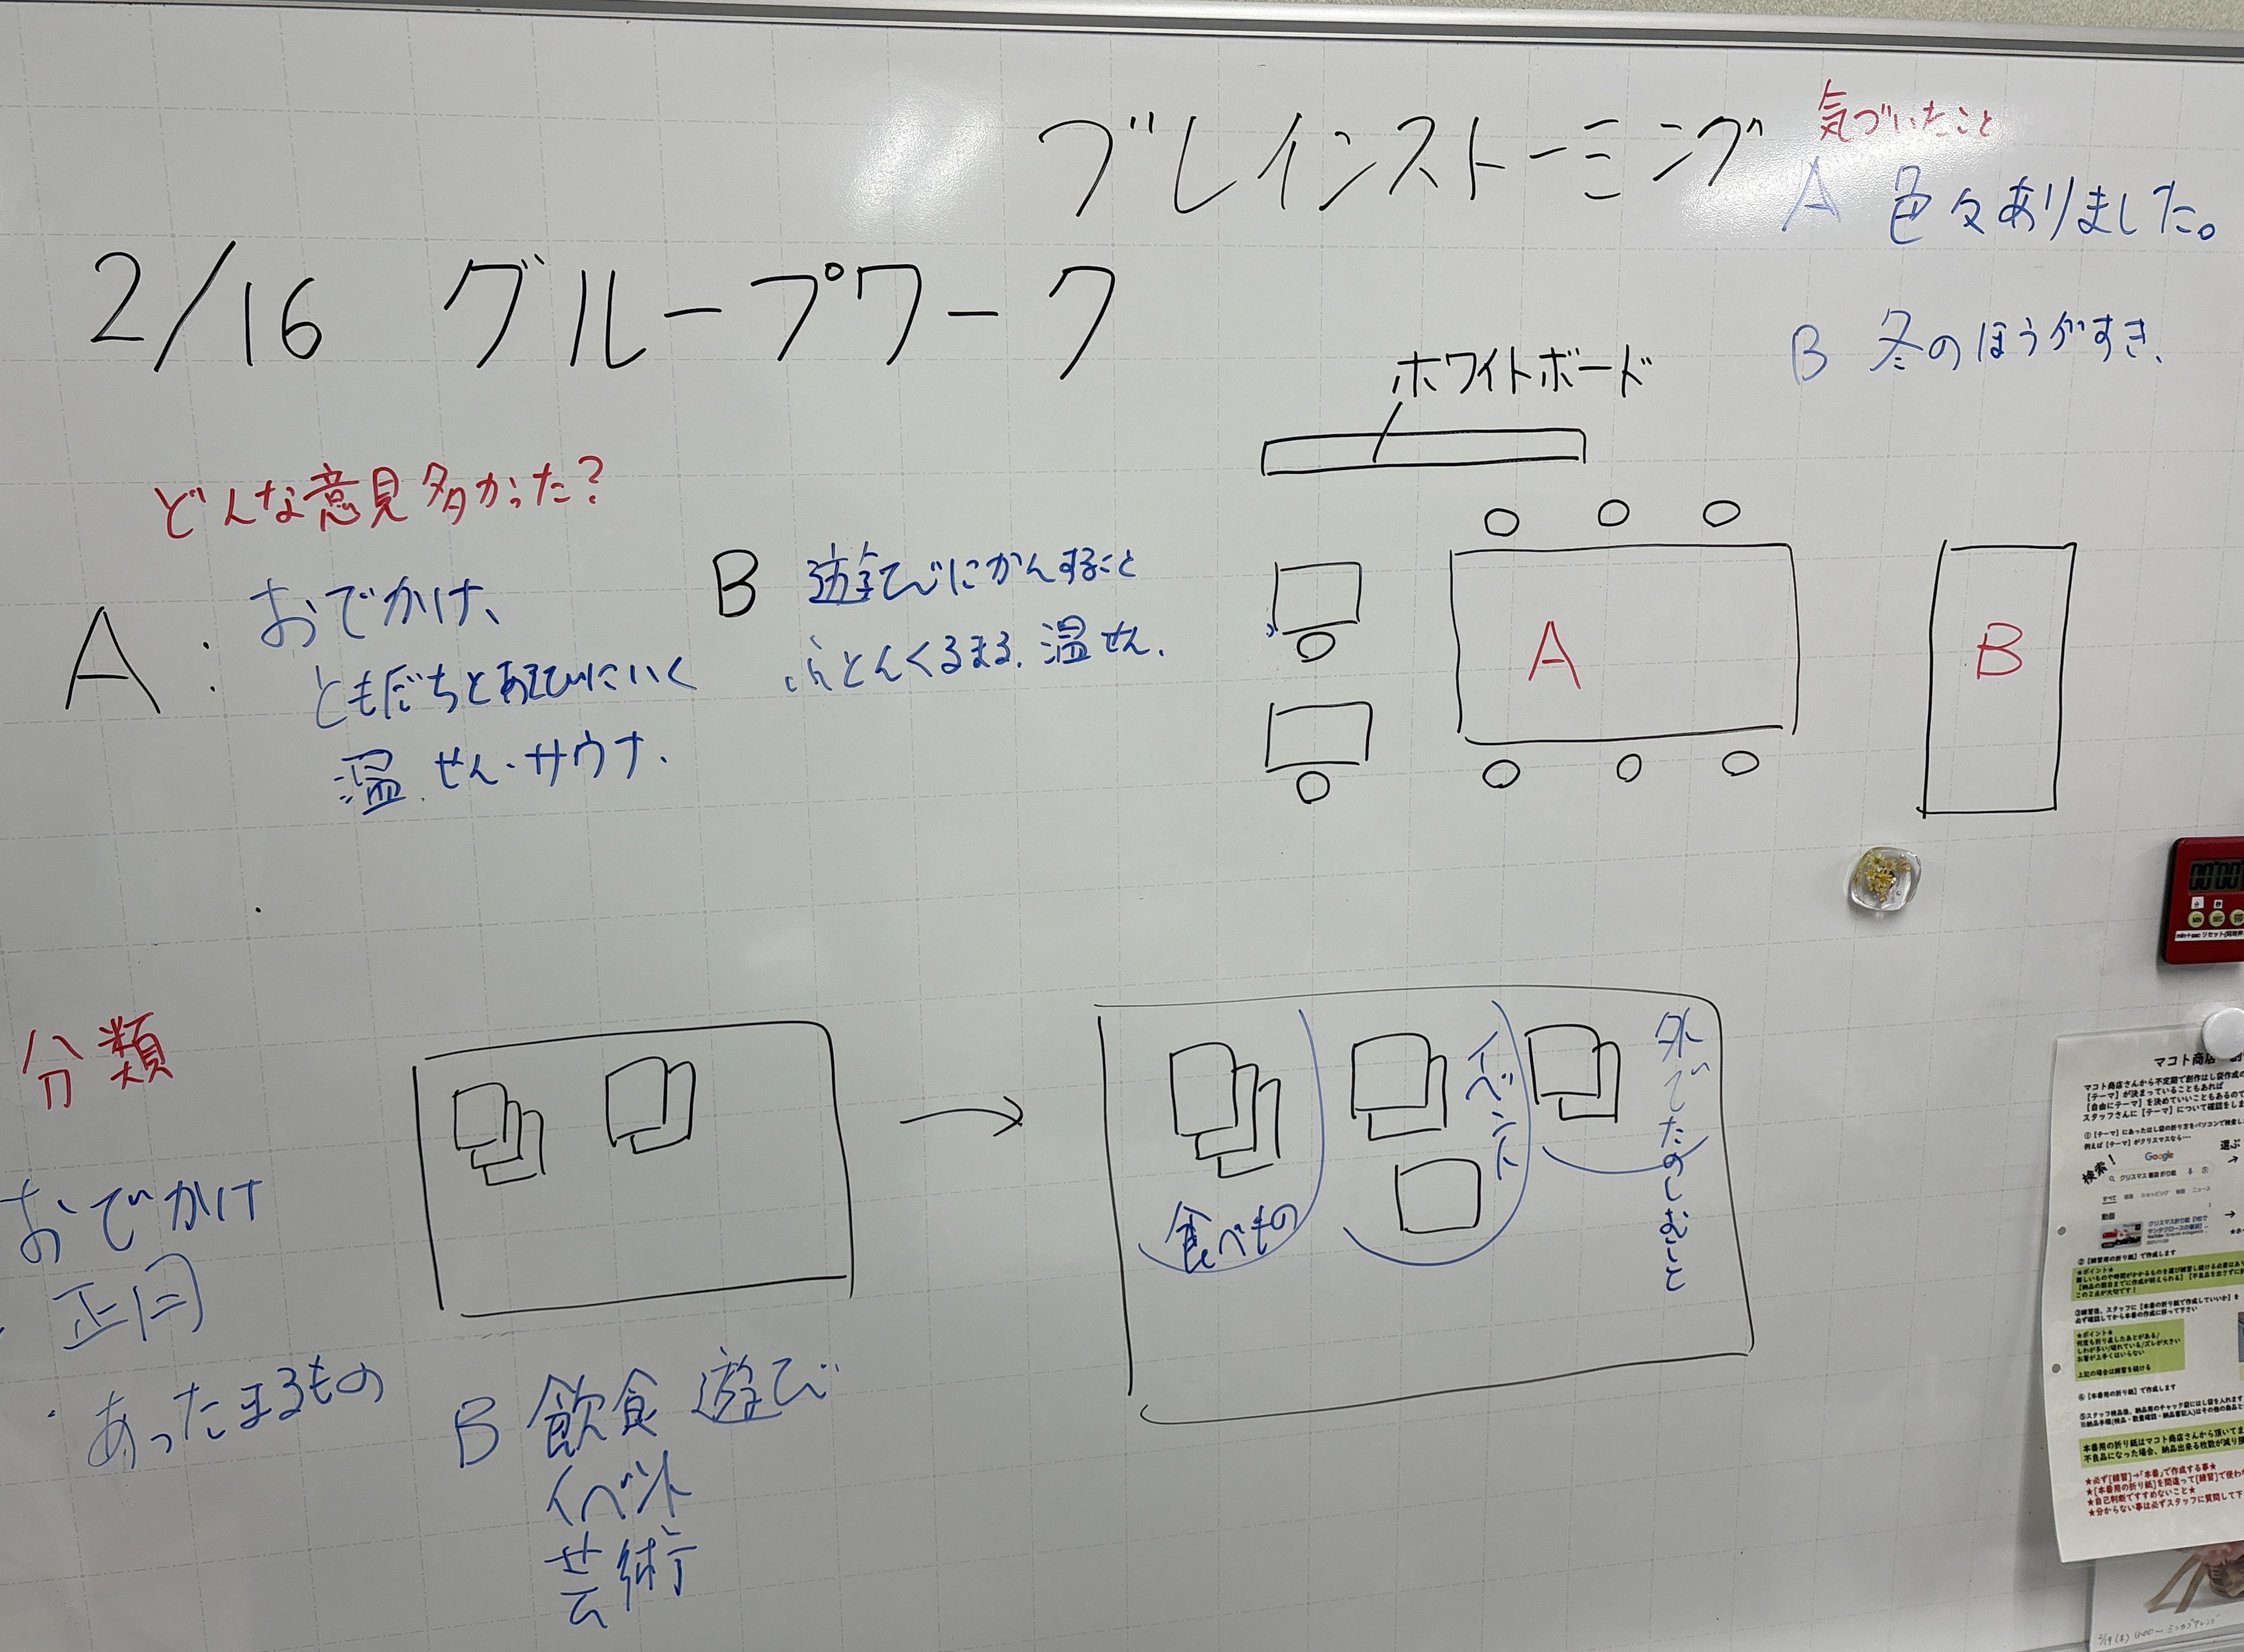 ブレインストーミング
2/16 グループワーク
気づいたこと
A 色々ありました。
B 冬のほうがすき、
ホワイトボード
どんな意見多かった?
A: おでかけ、
ともだちとあそびにいく
温せん・サウナ、
B 遊びにかんすること
ふとんくるまる、温せん、
A
B
分類
おでかけ
正月
・あったまるもの
B 飲食 遊び
イベント
芸術
食べもの
イベント
外でたのしむこと
00'00
マコト商店
マコト商店さんから不定期で創作はし袋作成の
【テーマ】が決まっていることもあれば
【自由にテーマ】を決めていいこともあるので
スタッフさんに【テーマ】について確認をしま
①【テーマ】にあったはし袋の折り方をパソコンで検索し
例えば【テーマ】がクリスマスなら…
検索!
Google
選ぶ
クリスマス 箸袋 折り紙
すべて
動画
②【練習用の折り紙】で作成します
★ポイント★
【納品の期日までに作成が終えられる】【不良品を出さずに
この2点が大切です!
③練習後、スタッフに【本番の折り紙で作成していいか】を
必ず確認してから本番の作成に移って下さい
★ポイント★
何度も折り直したあとがある/
しわが多い/破れている/ズレが大きい
お箸が上手くはいらない
上記の場合は練習を続ける
④【本番用の折り紙】で作成します
⑤スタッフ検品後、納品用のチャック袋にはし袋を入れます
本番用の折り紙はマコト商店さんから頂いてま
不良品になった場合、納品出来る枚数が減り
★必ず【練習】→「本番」で作成する事★
★【本番用の折り紙】を間違って【練習】で使わ
★自己判断ですすめないこと★
★分からない事は必ずスタッフに質問して下